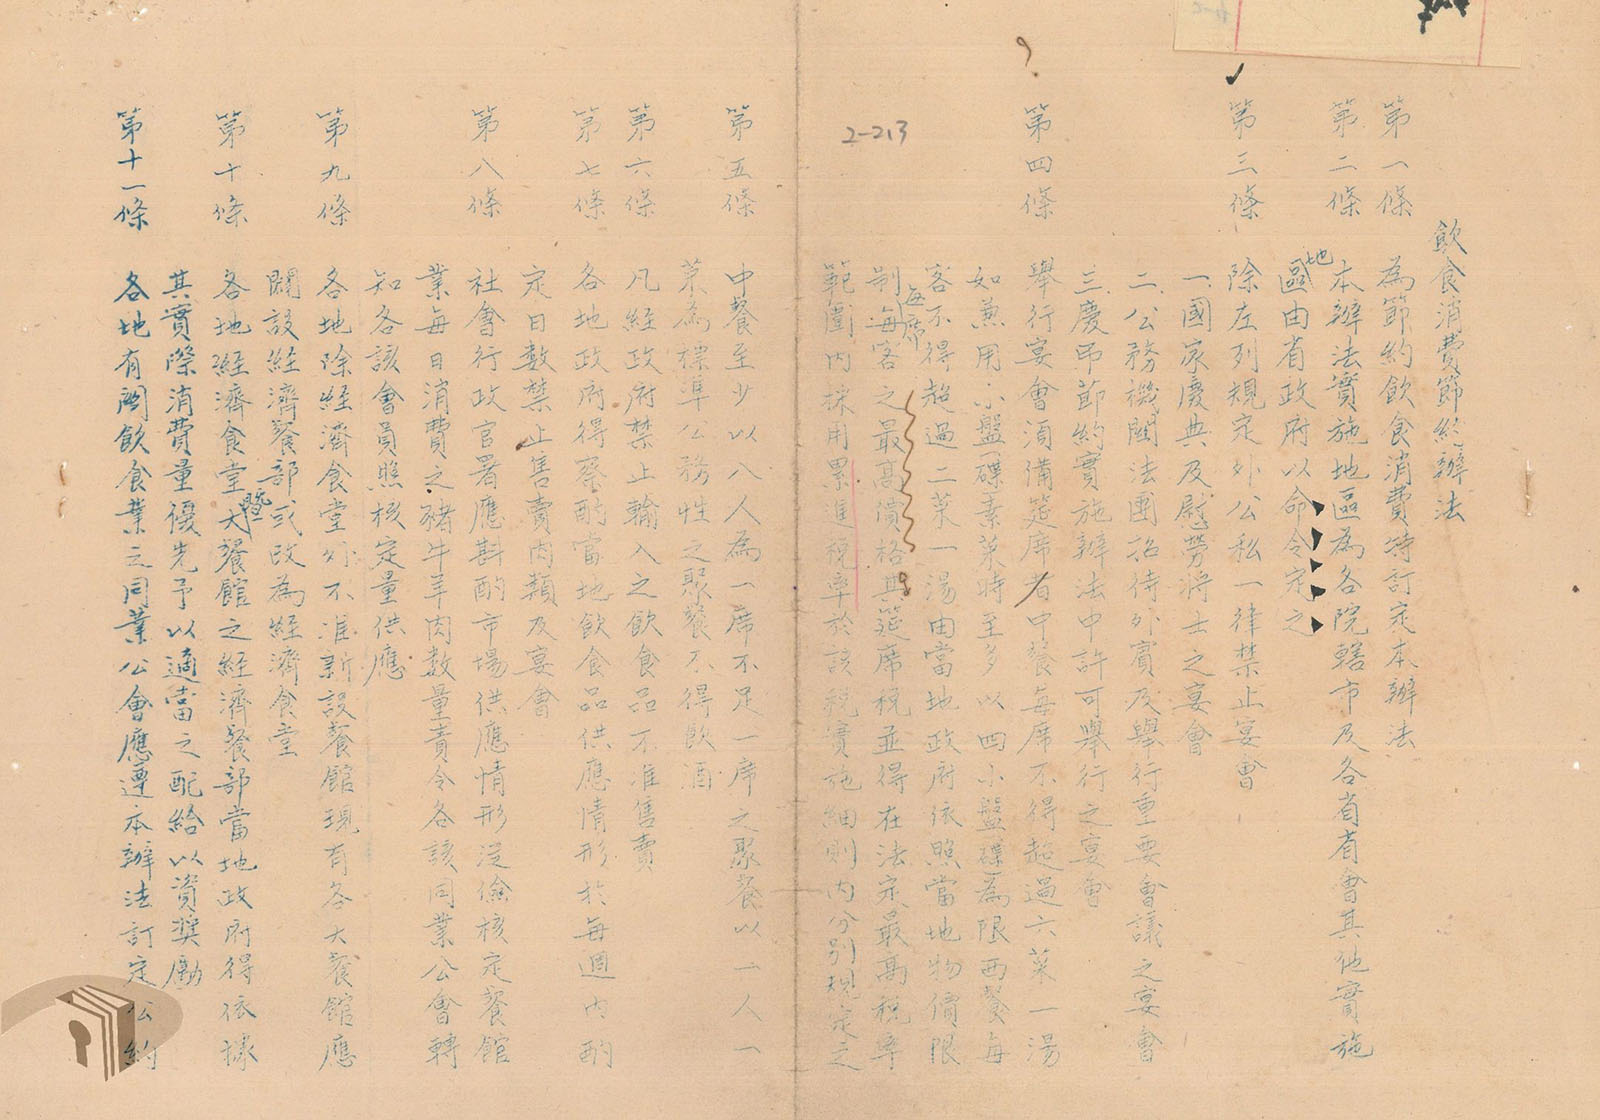 飲食消費節約辦法
第一條 為節約飲食消費特訂定本辦法
第二條 本辦法實施地區為各院轄市及各省省會其他實施
地區由省政府以命令定之
第三條 除左列規定外公私一律禁止宴會
一、國家慶典及慰勞將士之宴會
二、公務機關法團招待外賓及舉行重要會議之宴會
三、慶弔節約實施辦法中許可舉行之宴會
第四條 舉行宴會須備筵席者中餐每席不得超過六菜一湯
如兼用小盤碟素菜時至多以四小盤碟為限西餐每
客不得超過二菜一湯由當地政府依照當地物價限
制每席每客之最高價格與筵席稅並得在法定最高稅率
範圍內採用累進稅率於該稅實施細則內分別規定之
2-213
第五條 中餐至少以八人為一席不足一席之聚餐以一人一
菜為標準公務性之聚餐不得飲酒
第六條 凡經政府禁止輸入之飲食品不准售賣
第七條 各地政府得察酌當地飲食品供應情形於每週內酌
定日數禁止售賣肉類及宴會
第八條 社會行政官署應斟酌市場供應情形從儉核定餐館
業每日消費之豬牛羊肉數量責令各該同業公會轉
知各該會員照核定量供應
第九條 各地除經濟食堂外不准新設餐館現有各大餐館應
闢設經濟餐部或改為經濟食堂
第十條 各地經濟食堂暨大餐館之經濟餐部當地政府得依據
其實際消費量優先予以適當之配給以資獎勵
第十一條 各地有關飲食業之同業公會應遵本辦法訂定公約